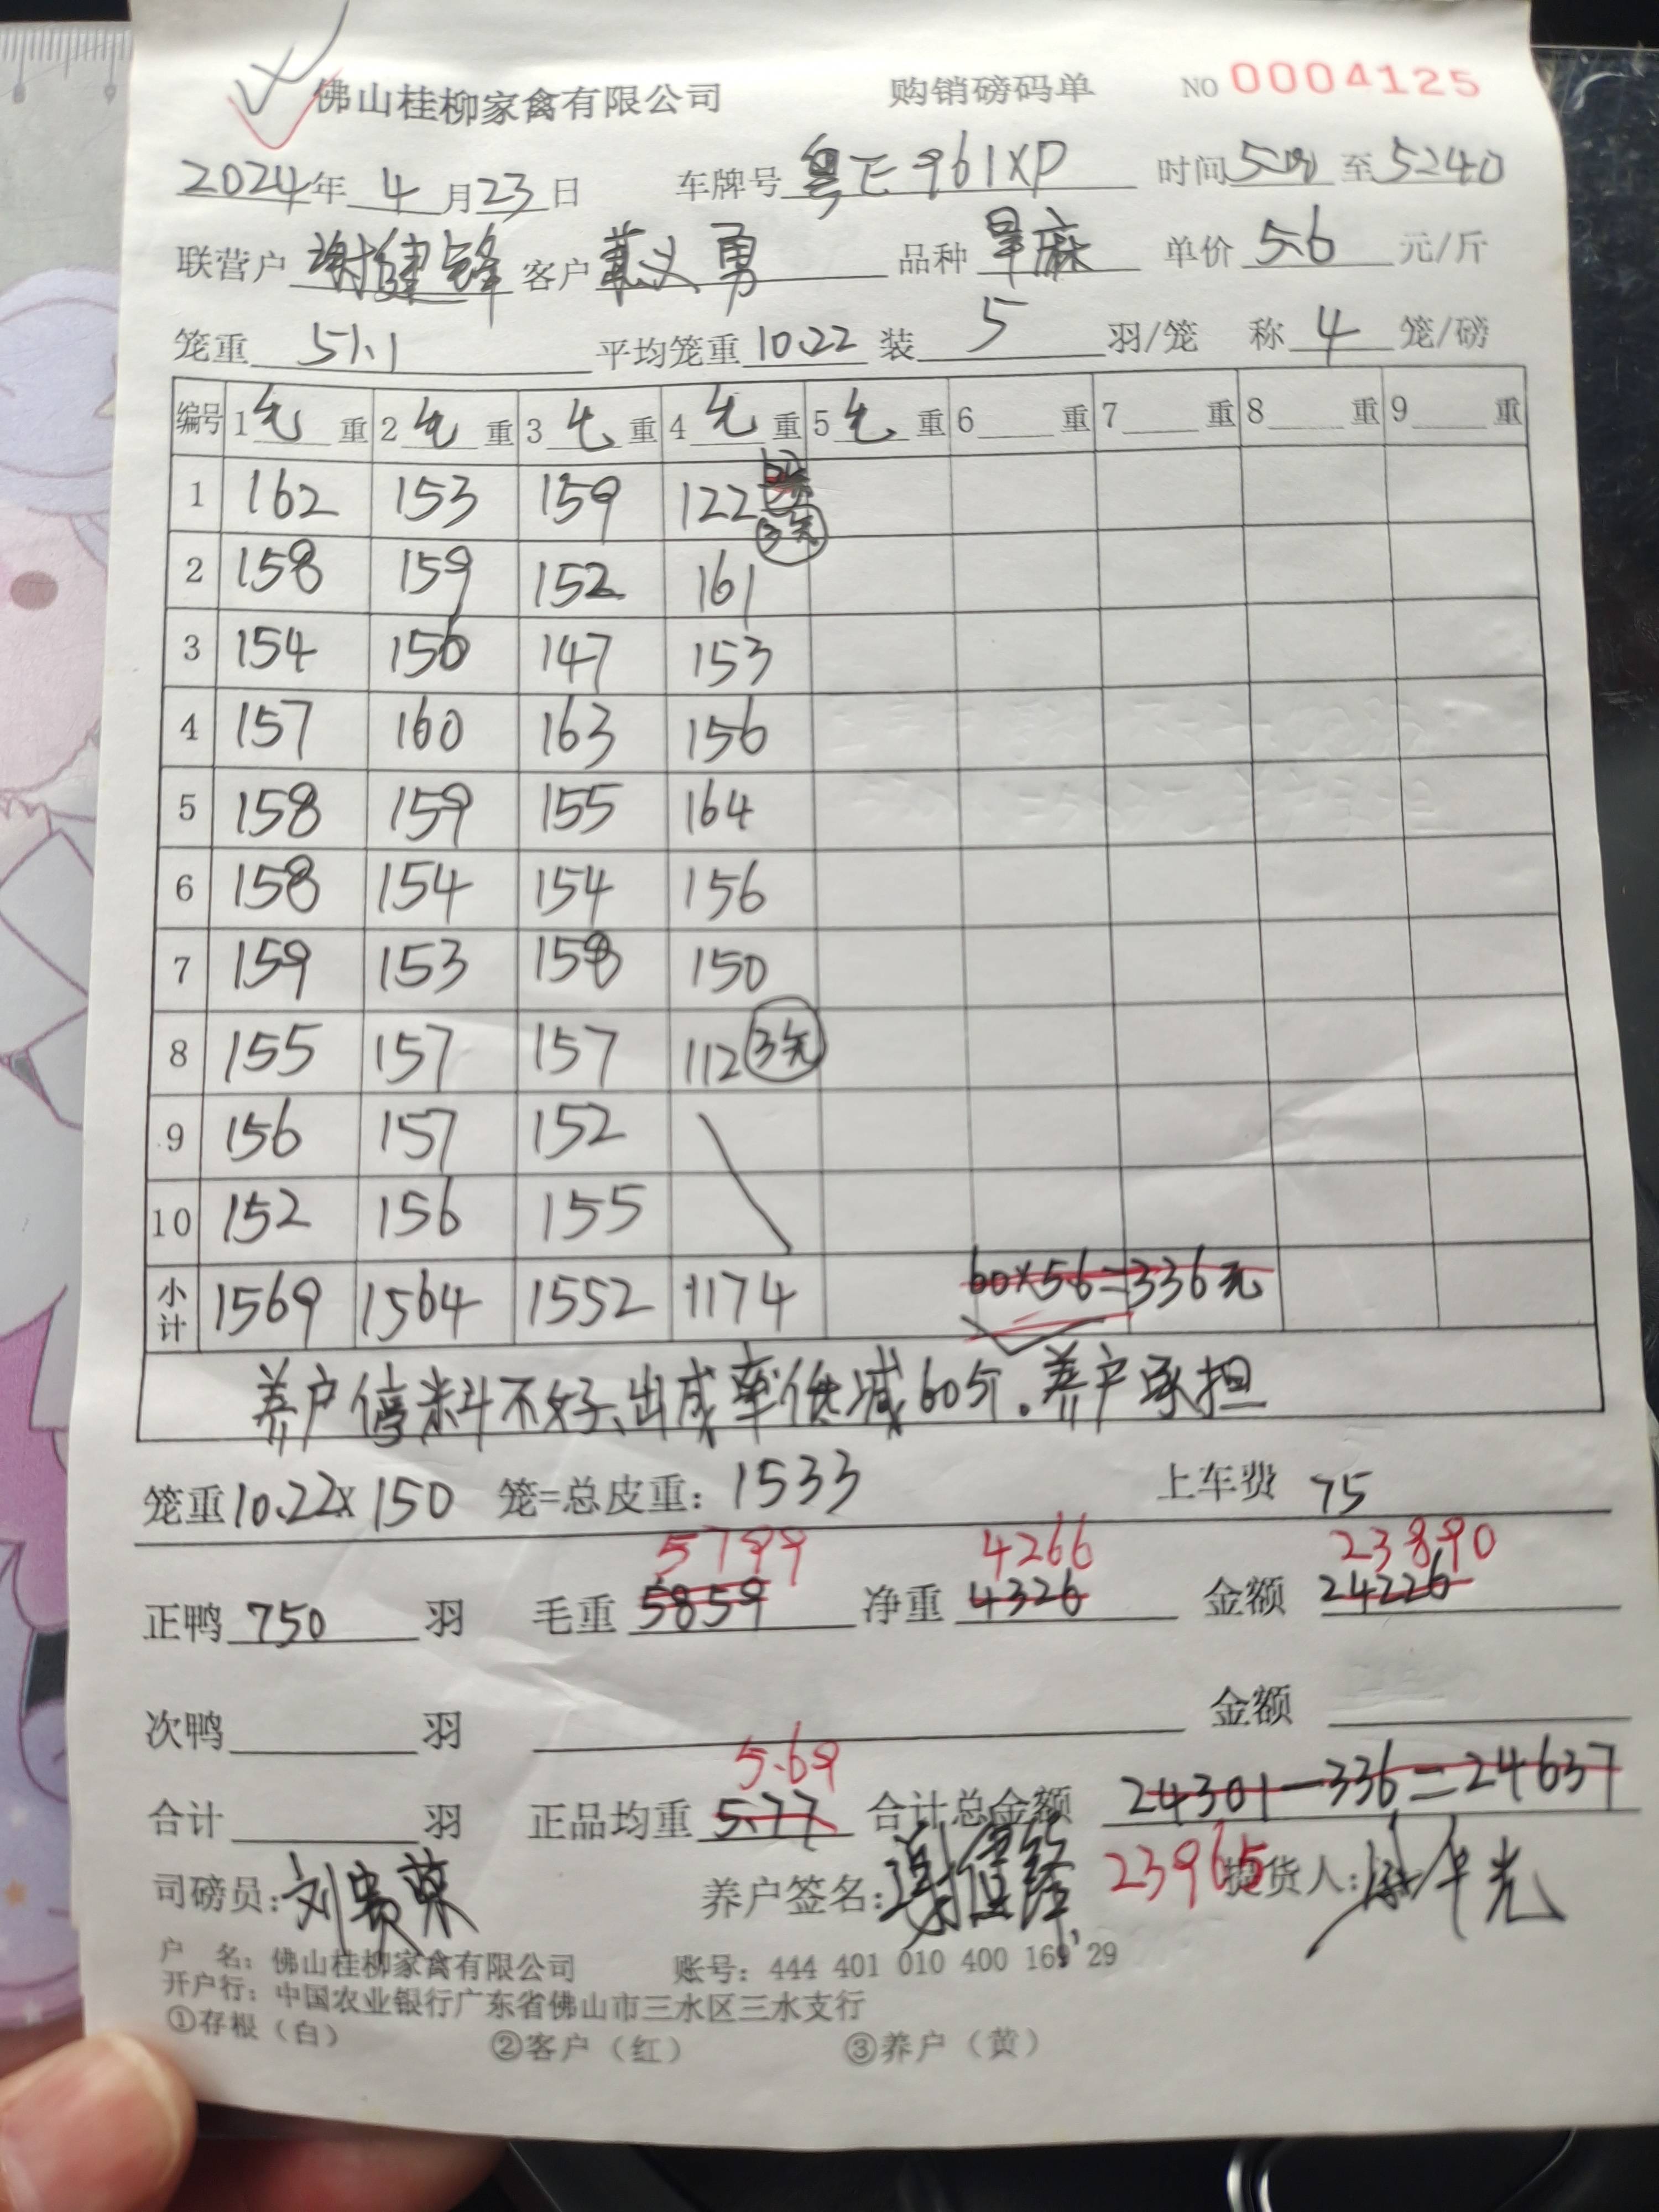 佛山桂柳家禽有限公司 购销磅码单 NO 0004125
2024年 4 月 23 日 车牌号 粤E961XP 时间 至 5:40
联营户 谢健锋 客户 勇 品种 旱麻 单价 5.6 元/斤
笼重 51.1 平均笼重 10.22 装 5 羽/笼 称 4 笼/磅
编号 1 毛 重 2 毛 重 3 毛 重 4 毛 重 5 毛 重 6 重 7 重 8 重 9 重
1 162 153 159 122 3笼
2 158 159 152 161
3 154 156 147 153
4 157 160 163 156
5 158 159 155 164
6 158 154 154 156
7 159 153 158 150
8 155 157 157 112 3笼
9 156 157 152
10 152 156 155
小计 1569 1564 1552 1174 60×56=336元
养户停料不好、出成率低减60斤。养户承担
笼重 10.22× 150 笼=总皮重: 1533 上车费 75
5799 4266 23890
正鸭 750 羽 毛重 5859 净重 4326 金额 24226
次鸭 羽 金额
5.69
合计 羽 正品均重 5.77 合计总金额 24301-336=24637
23965
司磅员: 刘 荣 养户签名: 提货人: 光
户 名: 佛山桂柳家禽有限公司 账号: 444 401 010 400 169 29
开户行: 中国农业银行广东省佛山市三水区三水支行
①存根（白） ②客户（红） ③养户（黄）